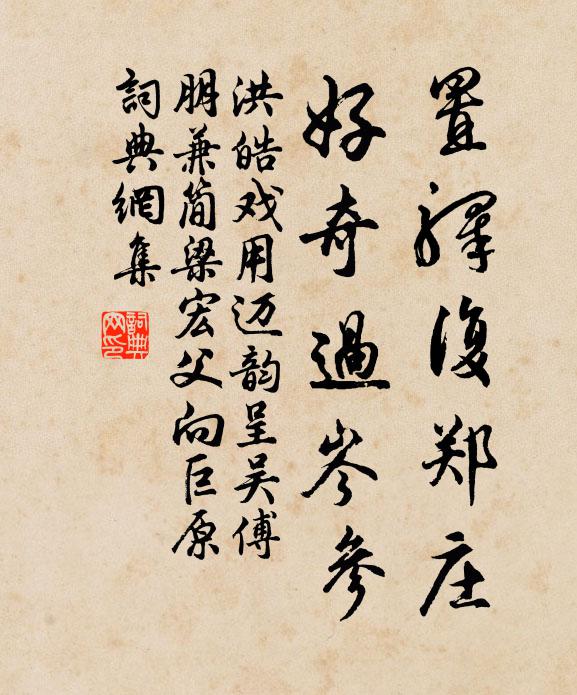 置驛復郑庄
好奇過岑參
洪皓戏用迈韵呈吴傅
朋兼简梁宏父向巨原
詞典網集
詞典網印